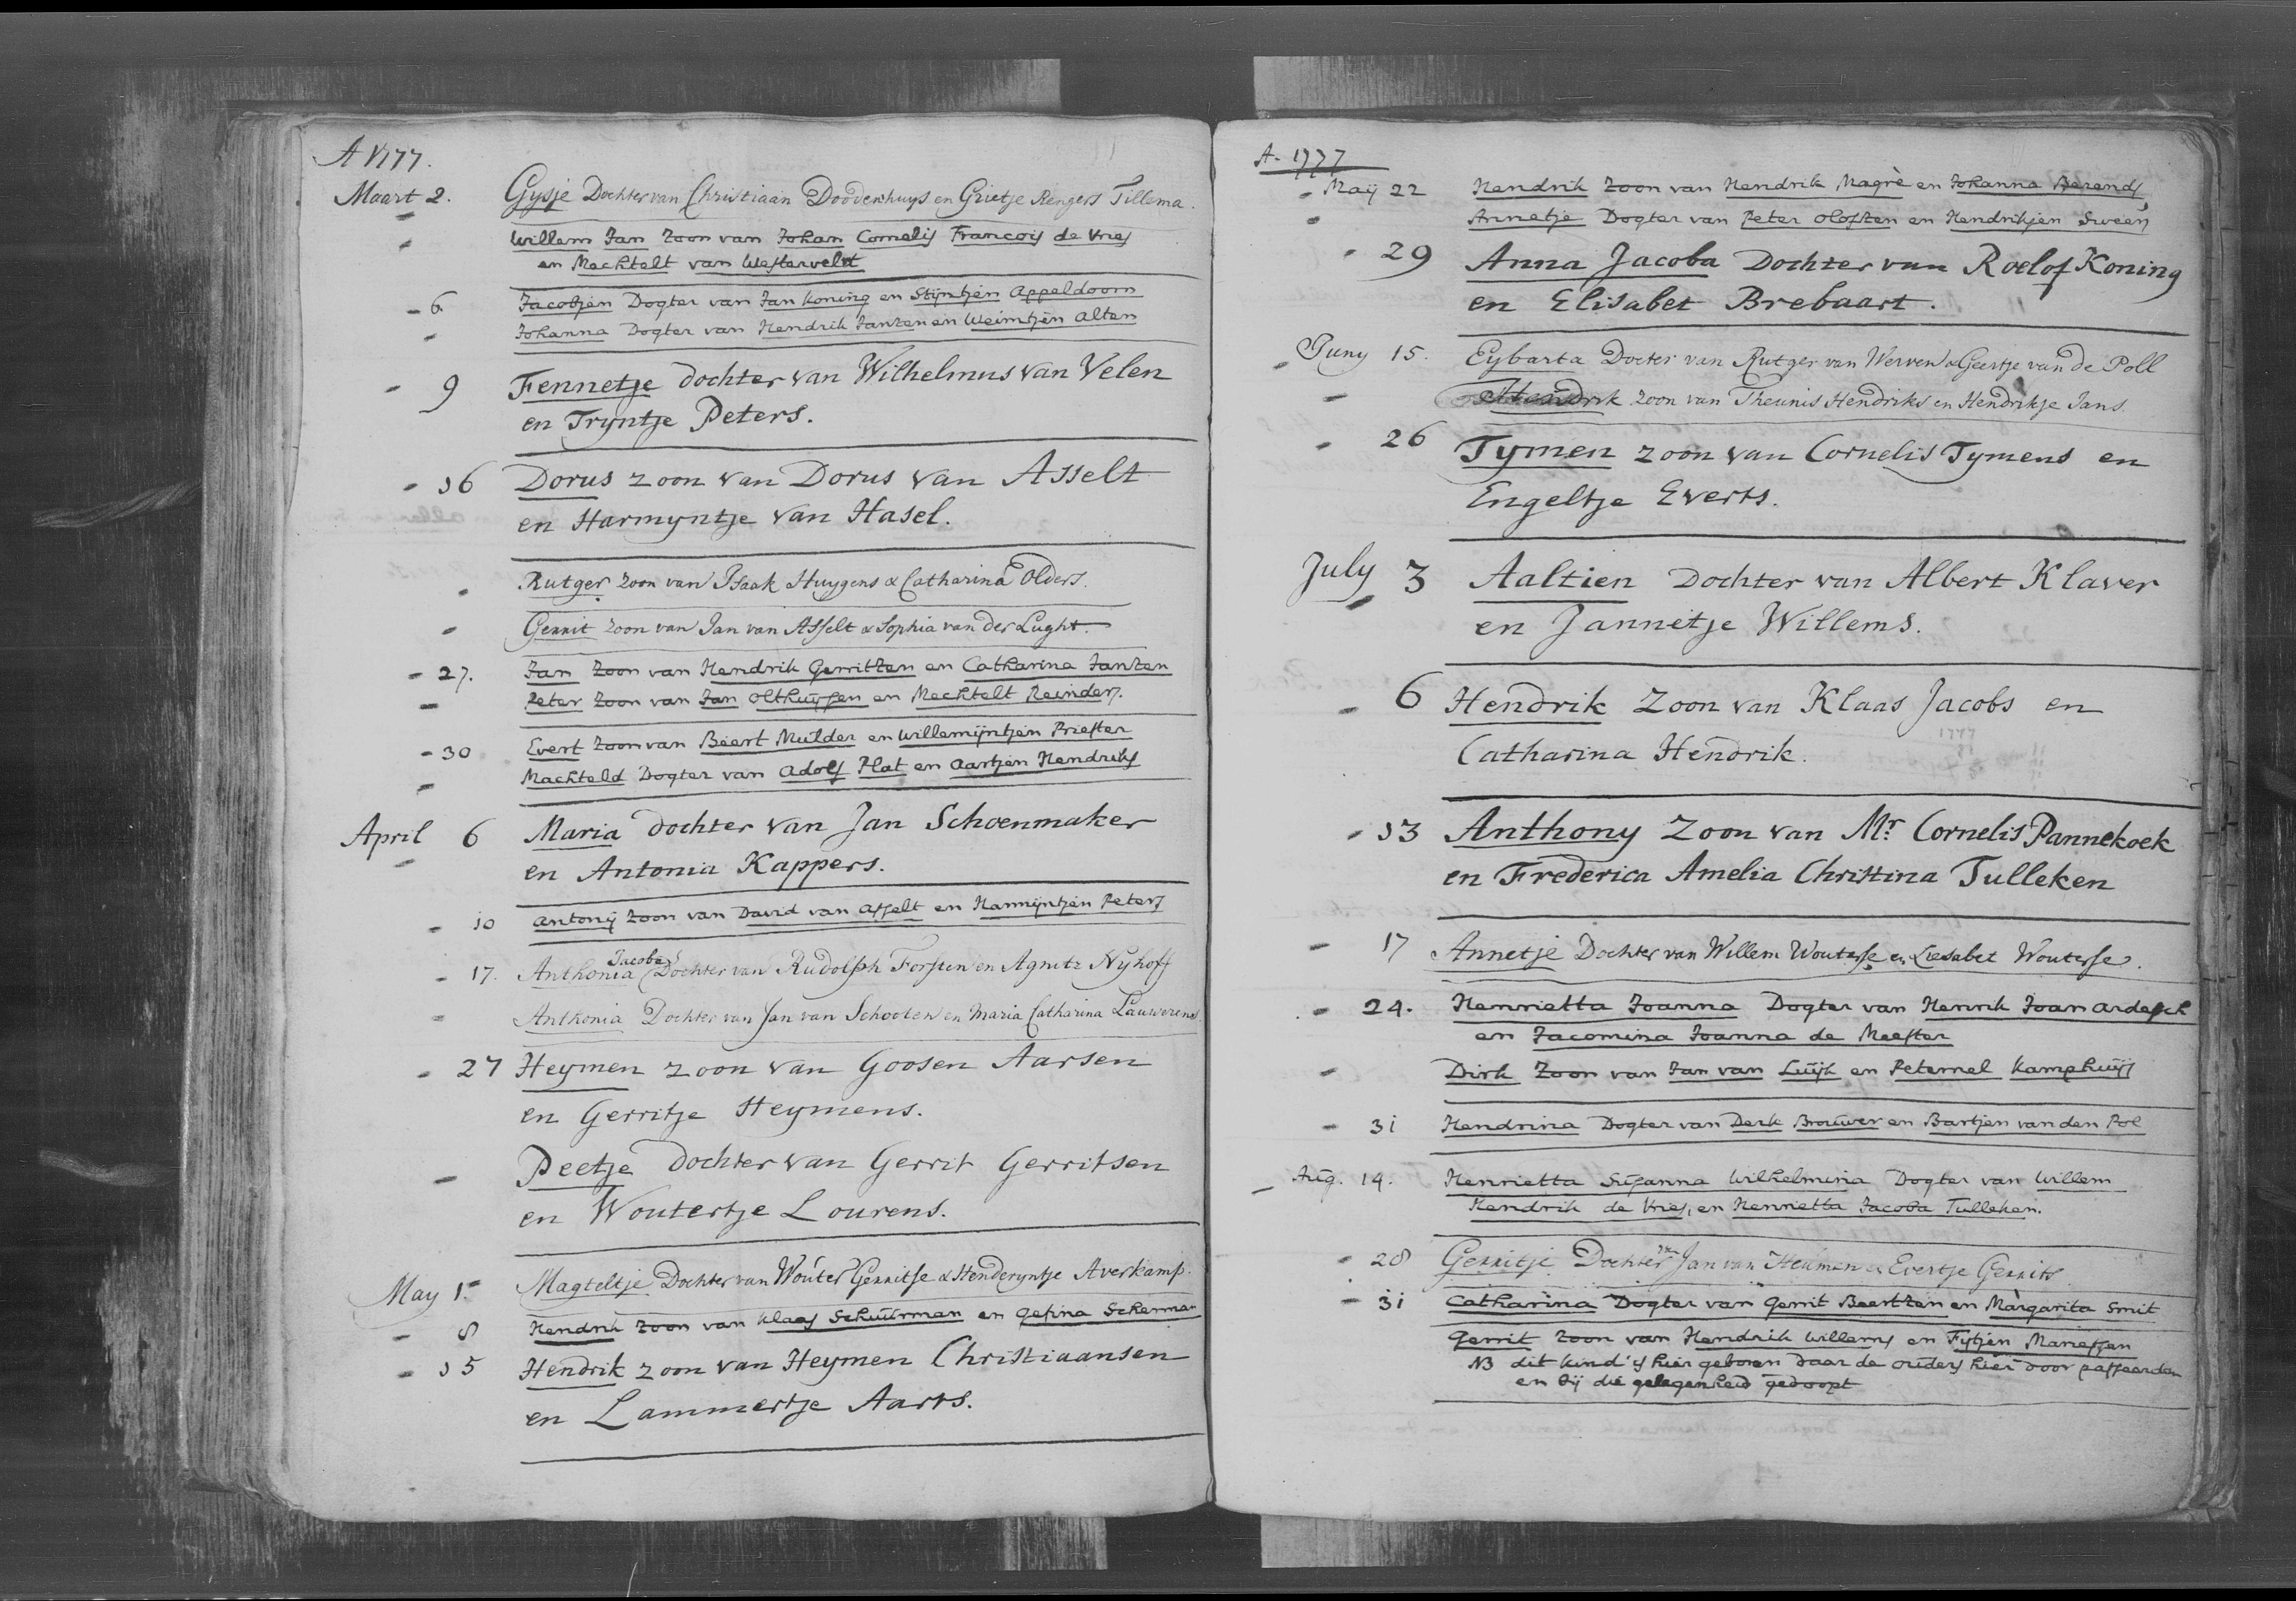 A 1777.
Maart 2. Gysje Dochter van Christiaan Doodenhuys en Grietje Rengers Tillema.
- Willem Jan Zoon van Johan Cornelis Francois de Vries
en Mechtelt van Westervelt
- 6 Jacobjen Dogter van Jan Koning en Stijntjen Appeldoorn
- Johanna Dogter van Hendrik Janzen en Weimtjen Alten
- 9 Fennetje dochter van Wilhelmus van Velen
en Tryntje Peters.
- 16 Dorus zoon van Dorus van Asselt
en Harmyntje van Hasel.
- Rutger zoon van Isaak Huygens & Catharina Olders.
- Gerrit zoon van Jan van Asselt & Sophia van der Lught.
- 27. Jan Zoon van Hendrik Gerritzen en Catharina Janzen
- Peter Zoon van Jan Olthuijsen en Mechtelt Reinders.
- 30 Evert Zoon van Beert Mulder en Willemijntjen Priester
- Machteld Dogter van Adolf Plat en Aartjen Hendriks
April 6 Maria dochter van Jan Schoenmaker
en Antonia Kappers.
- 10 Antonij Zoon van David van Asselt en Harmijntjen Peters
Jacoba
- 17. Anthonia Dochter van Rudolph Forsten en Agneta Nyhoff
- Anthonia Dochter van Jan van Schooten en Maria Catharina Lauwerens.
- 27 Heymen zoon van Goosen Aarsen
en Gerritje Heymens.
- Peetje dochter van Gerrit Gerritsen
en Woutertje Lourens.
May 1. Magteltje Dochter van Wouter Gerritse & Henderyntje Averkamp.
- 8 Hendrik Zoon van Klaas Schuurman en Gesina Scherman
- 15 Hendrik zoon van Heymen Christiaansen
en Lammertje Aarts.
A. 1777
- Maij 22 Hendrik Zoon van Hendrik Magrè en Johanna Berends
- Annetje Dogter van Peter Olofsen en Hendrikjen Sweers
- 29 Anna Jacoba Dochter van Roelof Koning
en Elisabet Brebaart.
Juny 15. Eybarta Docter van Rutger van Werven & Geertje van de Poll
- Hendrik Zoon van Theunis Hendriks en Hendrikje Jans.
- 26 Tymen zoon van Cornelis Tymens en
Engeltje Everts.
July 3 Aaltien Dochter van Albert Klaver
en Jannetje Willems.
- 6 Hendrik Zoon van Klaas Jacobs en
Catharina Hendrik.
- 13 Anthony Zoon van Mr. Cornelis Pannekoek
en Frederica Amelia Christina Tulleken
- 17 Annetje Dochter van Willem Wouterse en Liesabet Wouterse.
- 24. Henrietta Joanna Dogter van Henrik Joan Ardesch
en Jacomina Joanna de Meester
- Dirk Zoon van Jan van Luijk en Peternel Kamphuijs
- 31 Hendrina Dogter van Derk Brouwer en Bartjen van den Pol
- Aug. 14. Henrietta Susanna Wilhelmina Dogter van Willem
Hendrik de Vries, en Henrietta Jacoba Tulleken.
- 28 Gerritje Dochter van Jan van Heumen en Evertje Gerrits
- 31 Catharina Dogter van Gerrit Beertzen en Margarita Smit
Gerrit Zoon van Hendrik Willems en Fytjen Mariessen
NB dit kind is hier geboren daar de ouders hier door passeerden
en bij die gelegenheid gedoopt